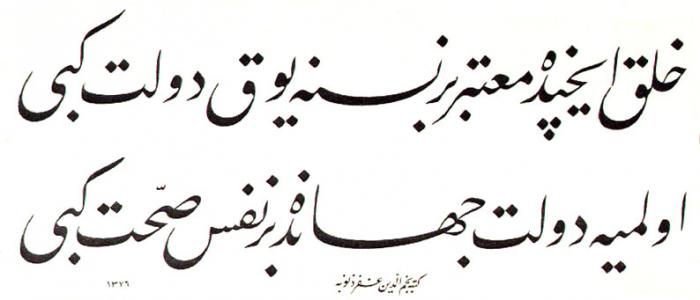 خلق ایچنده معتبر بر نسنه یوق دولت کبی
اولمیه دولت جهانده بر نفس صحّت کبی
کتبه نجم الدین غفر ذنوبه
١٣٧٦